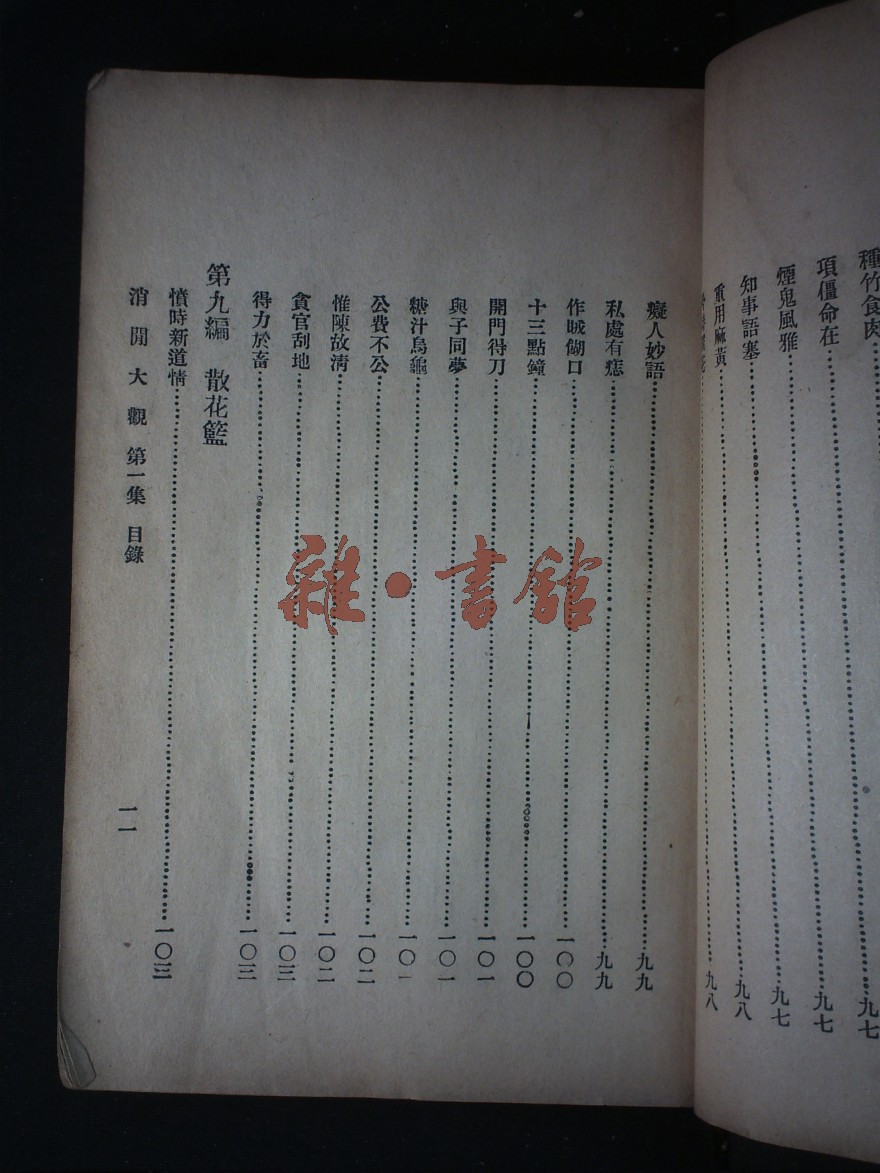 種竹食肉⋯⋯九七
項僵命在⋯⋯九七
煙鬼風雅⋯⋯九七
知事語塞⋯⋯九八
重用麻黃⋯⋯九八
癡人妙語⋯⋯九九
私處有痣⋯⋯九九
作賊餬口⋯⋯一〇〇
十三點鐘⋯⋯一〇〇
開門得刀⋯⋯一〇一
與子同夢⋯⋯一〇一
糖汁烏龜⋯⋯一〇一
公費不公⋯⋯一〇二
惟陳故淸⋯⋯一〇二
貪官刮地⋯⋯一〇三
得力於畜⋯⋯一〇三
第九編 散花籃
憤時新道情⋯⋯一〇三
消閒大觀 第一集 目錄
一一
雜·書館